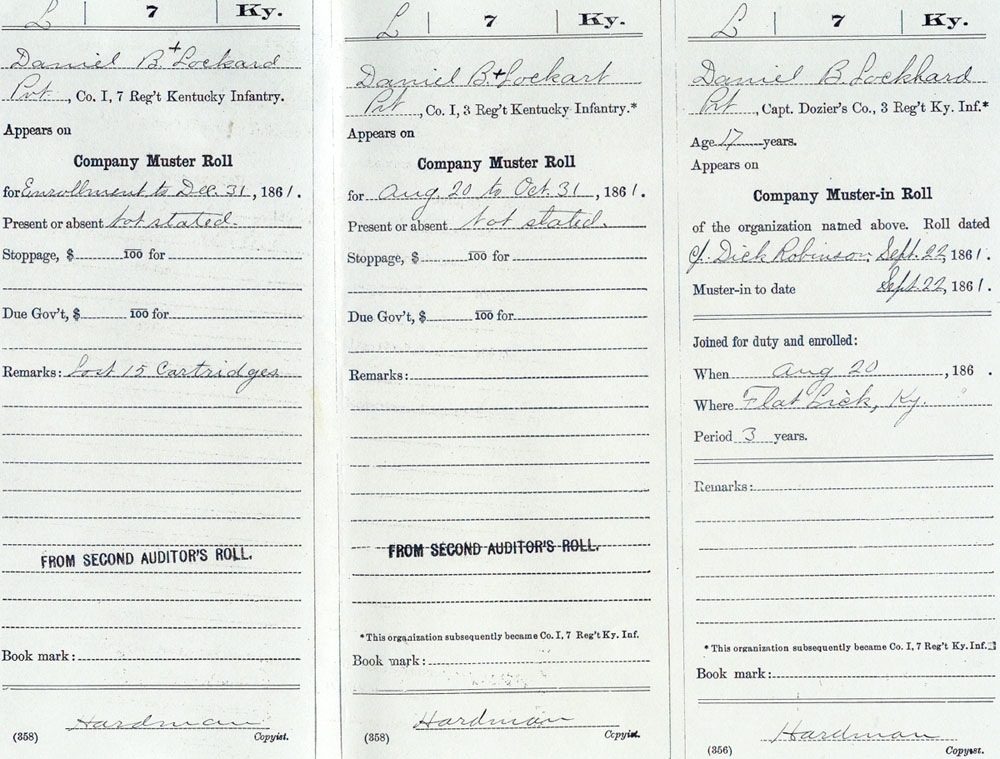 L | 7 | Ky.
Daniel B. + Lockard
Pvt., Co. I, 7 Reg't Kentucky Infantry.
Appears on
Company Muster Roll
for Enrollment to Dec. 31, 1861.
Present or absent Not stated.
Stoppage, $ 100 for
Due Gov't, $ 100 for
Remarks: Lost 15 Cartridges
FROM SECOND AUDITOR'S ROLL.
Book mark:
Hardman
(358) Copyist.
L | 7 | Ky.
Daniel B + Lockart
Pvt, Co. I, 3 Reg't Kentucky Infantry.*
Appears on
Company Muster Roll
for Aug. 20 to Oct. 31, 1861.
Present or absent Not stated.
Stoppage, $ 100 for
Due Gov't, $ 100 for
Remarks:
FROM SECOND AUDITOR'S ROLL.
*This organization subsequently became Co. I, 7 Reg't Ky. Inf.
Book mark:
Hardman
(358) Copyist.
L | 7 | Ky.
Daniel B. Lockhard
Pvt, Capt. Dozier's Co., 3 Reg't Ky. Inf.*
Age 17 years.
Appears on
Company Muster-in Roll
of the organization named above. Roll dated
C. Dick Robinson, Sept. 22, 1861.
Muster-in to date Sept. 22, 1861.
Joined for duty and enrolled:
When Aug 20, 186 .
Where Flat Lick, Ky.
Period 3 years.
Remarks:
*This organization subsequently became Co. I, 7 Reg't Ky. Inf.
Book mark:
Hardman
(356) Copyist.